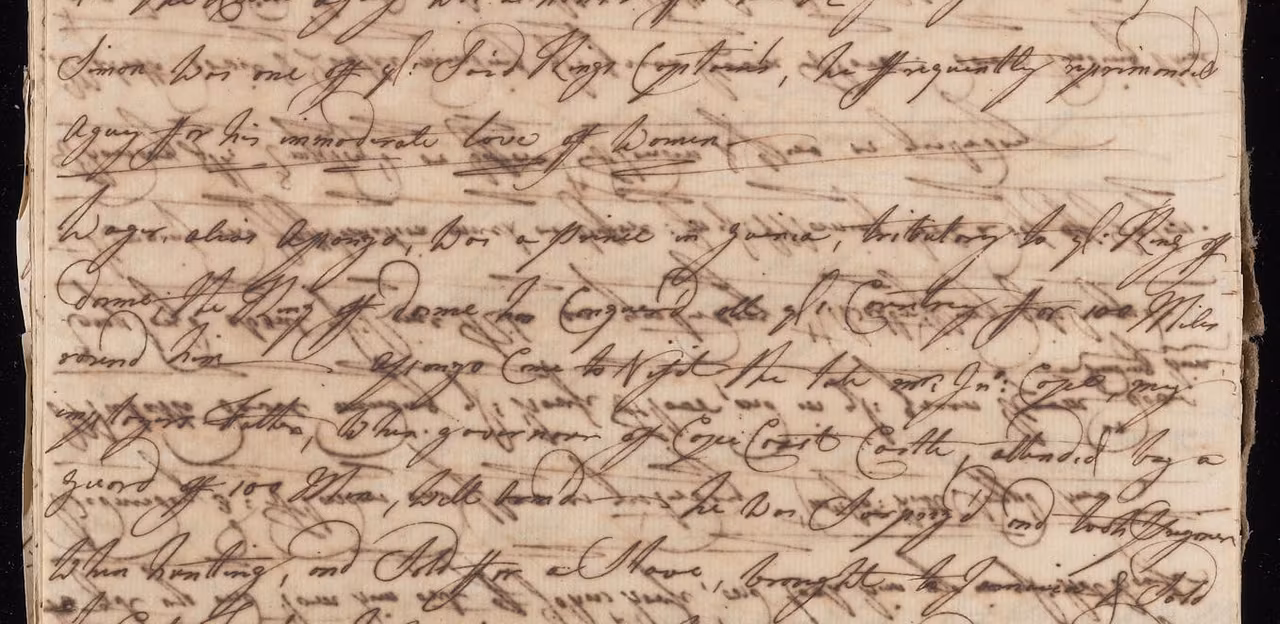 Simon was one off ye. Said Kings Captains, he ffrequently reprimanded
Aguy ffor his immoderate love off Women
Wager, alias Apongo, was a Prince in Guinea, tributary to ye. King off
dome the King off dome has Conquerd all ye. Country ffor 100 Miles
round him Apongo Came to Visit the late mr. Jno: Cope, my
imployers Father, when governour off Cape Coast Castle, attended by a
guard off 100 Men, well armd he was Surprizd and took Prisoner
When hunting, and Sold ffor a Slave, brought to Jamaica & Sold